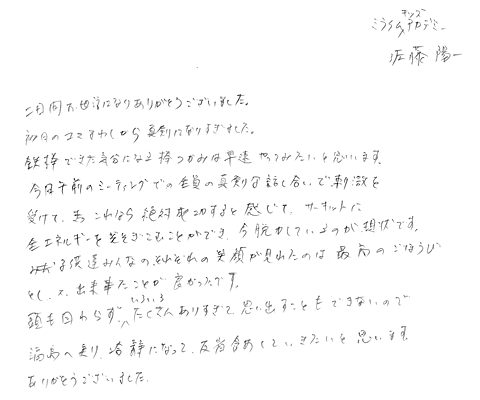 キッズ
ミライムアカデミー
佐藤 陽一
二日間お世話になりありがとうございました。
初日のコマまわしから真剣になりすぎました。
鉄棒できた気分になる棒つかみは早速やってみたいと思います。
今日午前のミーティングでの全員の真剣な話し合いで刺激を
受けて、これなら絶対成功すると感じて、サーキットに
全エネルギーを注ぎこむことができ、今脱力しているのが現状です。
子供達みんなの、それぞれの笑顔が見れたのは最高のごほうび
でし 出来事たことが 良かったです。
いろいろ
頭も回わらず、たくさんありすぎて思い出すこともできないので
福島へ戻り、冷静になって、反省含めしていきたいと思います
ありがとうございました。